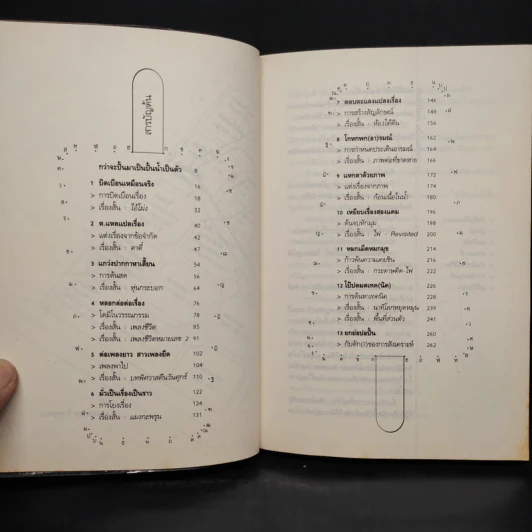 สารบัญค้น
กว่าจะปั้นมาเป็นปั้นน้ำเป็นตัว 8
1 บิดเบือนเหมือนจริง 16
> การบิดเบือนเรื่อง 18
> เรื่องสั้น - ไอ้โม่ง 32
2 ด.แหลแปลงเรื่อง 42
> แต่งเรื่องจากข้อจำกัด 44
> เรื่องสั้น - คาตี้ 47
3 แกว่งปากกาหาเสี้ยน 54
> การด้นสด 56
> เรื่องสั้น - หุ่นกระบอก 64
4 หลอกล่อต่อเรื่อง 76
> โดมิโนวรรณกรรม 78
> เรื่องสั้น - เพลงชีวิต 85
> เรื่องสั้น - เพลงชีวิตหมายเลข 2 91
5 ต่อเพลงยาว สาวเพลงยืด 102
> เพลงพาไป 104
> เรื่องสั้น - บทพิศวาสคืนวันศุกร์ 110
6 มั่วเป็นเรื่องเป็นราว 122
> การโยงเรื่อง 124
> เรื่องสั้น - แมงกะพรุน 131
7 ตอบตะแลงแปลงเรื่อง 146
> การสร้างสัญลักษณ์ 148
> เรื่องสั้น - ห้องใต้ดิน 156
8 โกหกพก(อา)รมณ์ 162
> การกำหนดประเด็นอารมณ์ 164
> เรื่องสั้น - ภาพต่อที่ขาดหาย
9 แหกตาด้วยภาพ
> แต่งเรื่องจากภาพ
> เรื่องสั้น - ก้อนเนื้อในน้ำ 180
10 เหยียบเรื่องสองแคม
> ด้นจบหักมุม
> เรื่องสั้น - ไฟ - Revisited 200
11 หมกเม็ดหมกมุข 214
> ก้าวพ้นความแคบชิน 221
> เรื่องสั้น - กระดาษติดไฟ
12 โป้ปดมดเทค(นิค)
> การค้นหาเทคนิค
> เรื่องสั้น - นาทีโลกหยุดหมุน
> เรื่องสั้น - พื้นที่ส่วนตัว 241
13 ยกย่อปอปั้น 260
> กับดักของการสังเคราะห์ 262